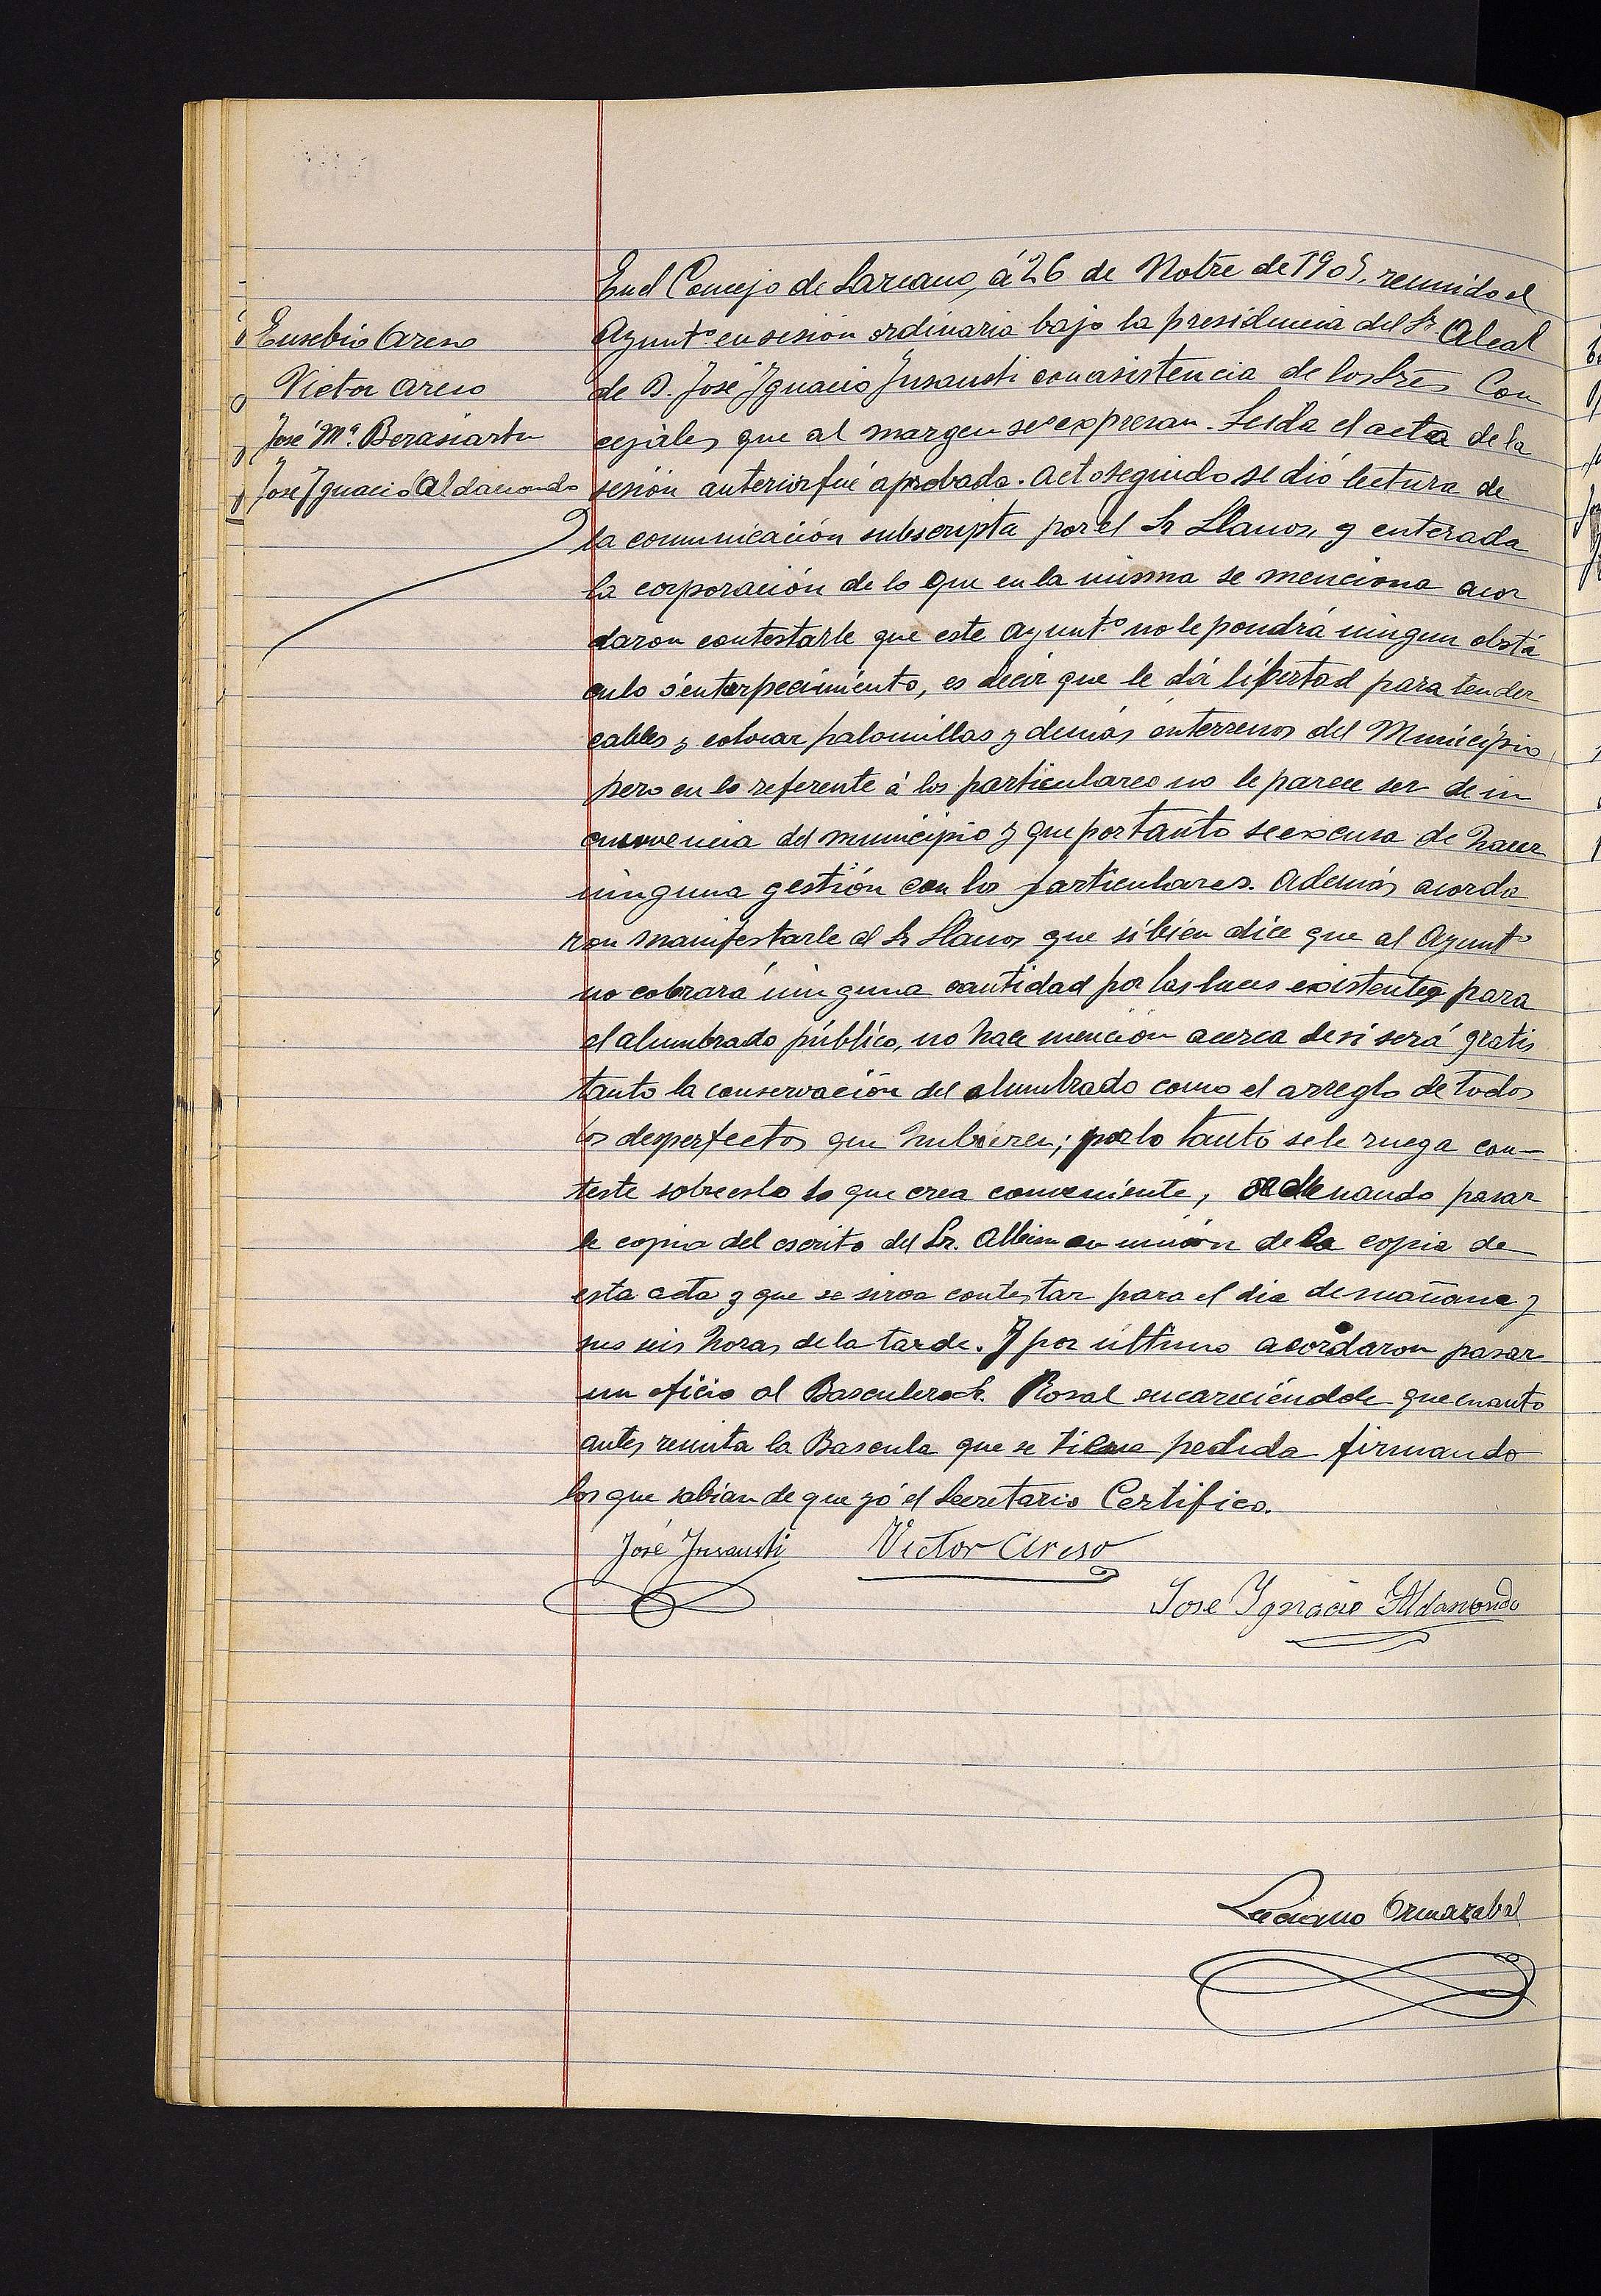 En el Concejo de Lazcano, á 26 de Nobre de 1905, reunido el
Eusebio Areso
Ayuntº en sesión ordinaria bajo la presidencia del Sr. Alcal
Victor Areso
de D. José Ygnacio Ynsausti con asistencia de los Sres Con
José Mª. Berasiartu
cejales que al margen se expresan. Leida el acta de la
José Ygnacio Aldanondo
sesión anterior fué aprobada. Acto seguido se dió lectura de
la comunicación subscripta por el Sr Llanos, y enterada
la corporación de lo que en la misma se menciona acor
daron contestarle que este Ayuntº no le pondrá ningun obstá
culo ó enterpecimiento, es decir que le dá libertad para tender
cables y colocar palomillas y demás en terrenos del Municipio
pero en lo referente á los particulares no le parece ser de in
del municipio y que por tanto se excusa de hacer
ninguna gestión con los particulares. Además acorda
ron manifestarle al Sr Llanos que si bien dice que al Ayuntº
no cobrará ninguna cantidad por las luces existentes para
el alumbrado público, no hace mención acerca de si será gratis
tanto la conservación del alumbrado como el arreglo de todos
los desperfectos que hubieren; por lo tanto se le ruega con-
teste sobre esto lo que crea conveniente, ordenando pasar
le copia del escrito del Sr. en unión de la copia de
esta acta y que se sirva contestar para el dia de mañana y
sus seis horas de la tarde. Y por último acordaron pasar
un oficio al Basculero Sr. Rosal encareciéndole que cuanto
antes remita la Bascula que se tiene pedida firmando
los que sabian de que yó el Secretario Certifico.
José Ynsausti Victor Areso
Jose Ygnacio Aldanondo
Luciano Ormazabal